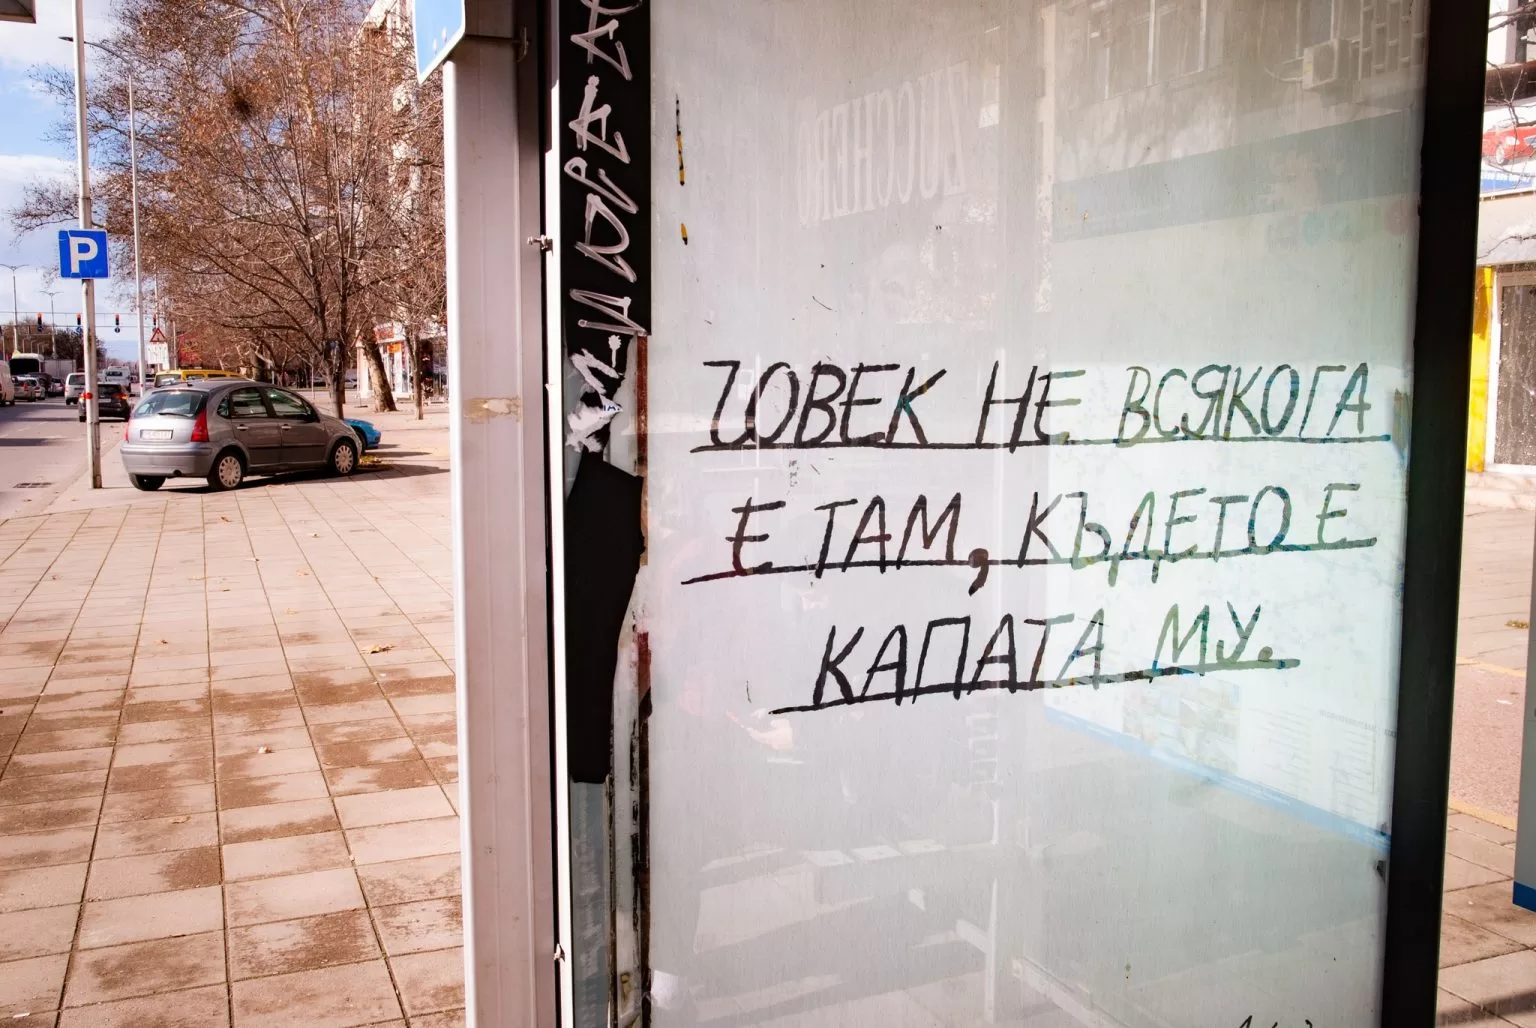 P
ZUCCHERO
ЧОВЕК НЕ ВСЯКОГА
Е ТАМ, КЪДЕТО Е
КАПАТА МУ.